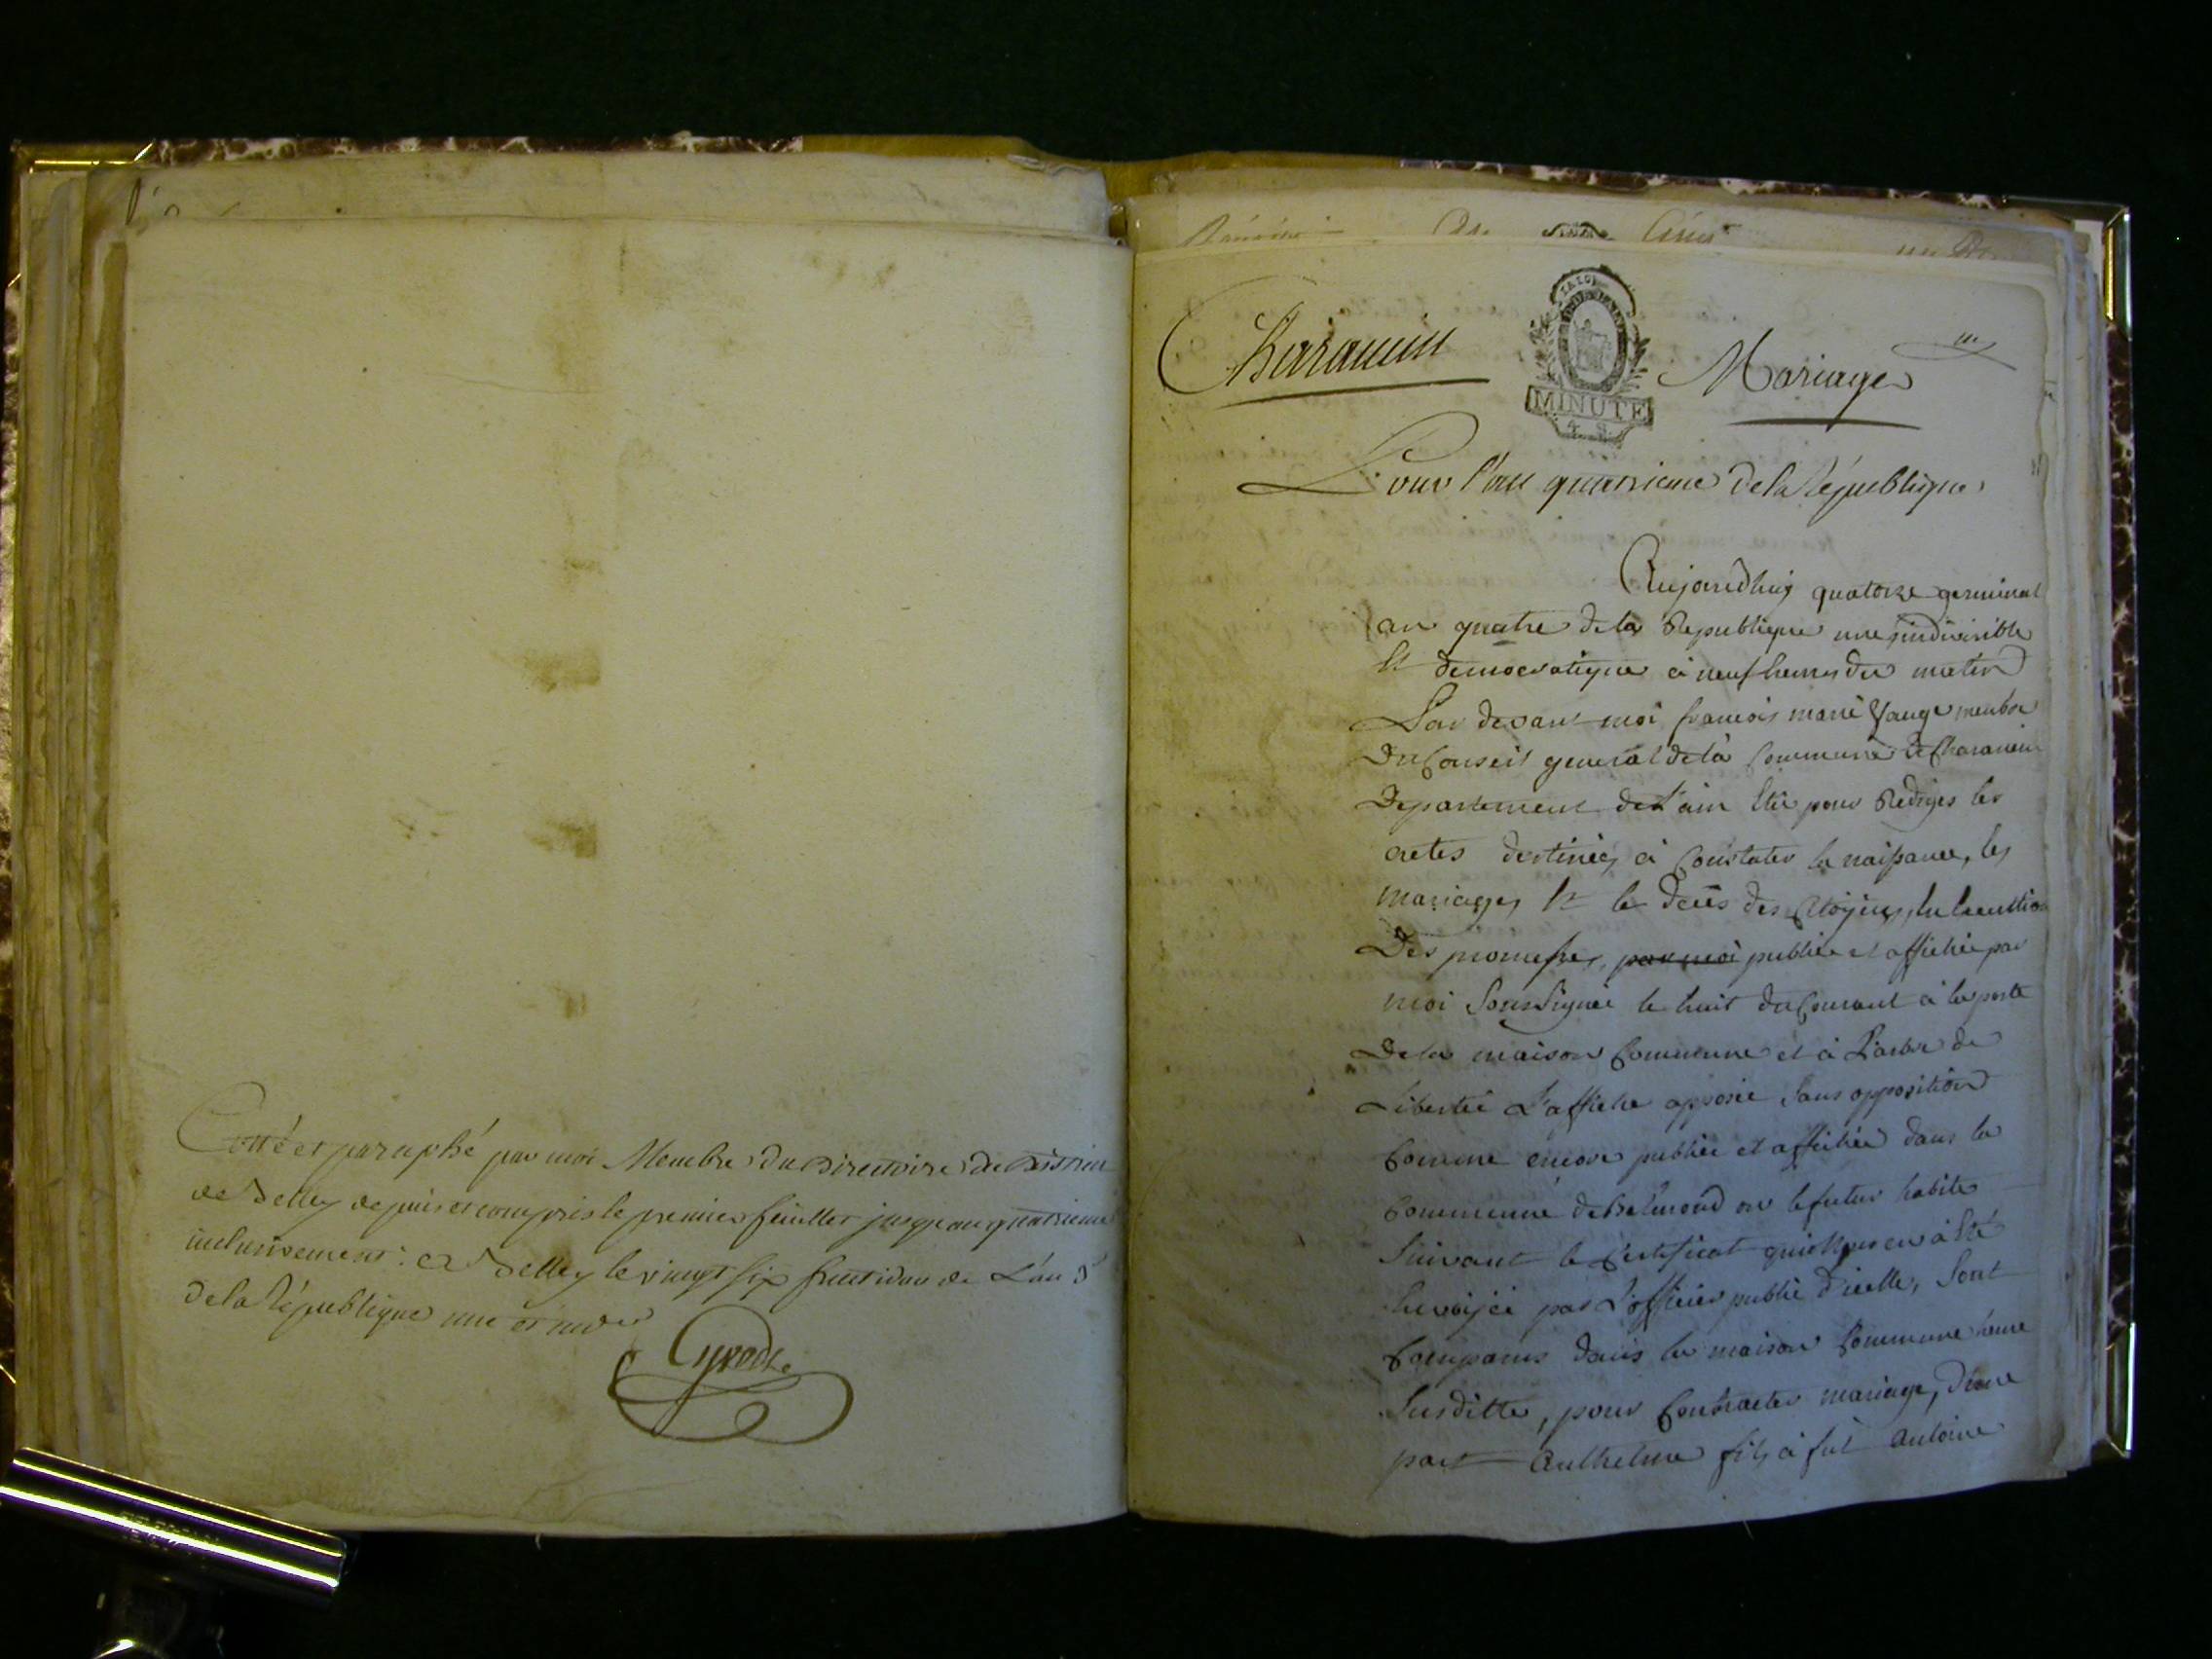 Cotté et paraphé par moi Membre du Directoire du District
de Belley depuis et compris le premier feuillet jusqu'au quatrieme
inclusivement: a Belley le vingt six fructidor de L'an 3e
de la République une et indve
Charancin
MINUTE
4. S.
Mariage
Pour l'an quatrieme de la République
Aujourdhuy quatorze germinal
an quatre de la Republique une, indivisible
Et democratique à neuf heures du matin
Par devant moi francois marie membre
Du Conseil general de la Commune de Charancin
Departement de L'ain Elu pour Rediger les
actes destinés à Constater la naissance, les
mariages Et le décès des Citoyens, en Execution
Des promesses, par moi publiée et affichée par
moi Soussigné le huit du Courant à la porte
De la maison Commune et à L'arbre de
Liberté L'affiche apposée sans opposition
Comme encore publiée et affichée dans la
Commune de Belmond ou le futur habite
Suivant le Certificat qui en à Eté
Envoijée par L'officier public d'icelle, Sont
Comparus dans la maison Commune heure
Susditte, pour Contracter mariage, d'une
part Anthelme fils à fut Antoine